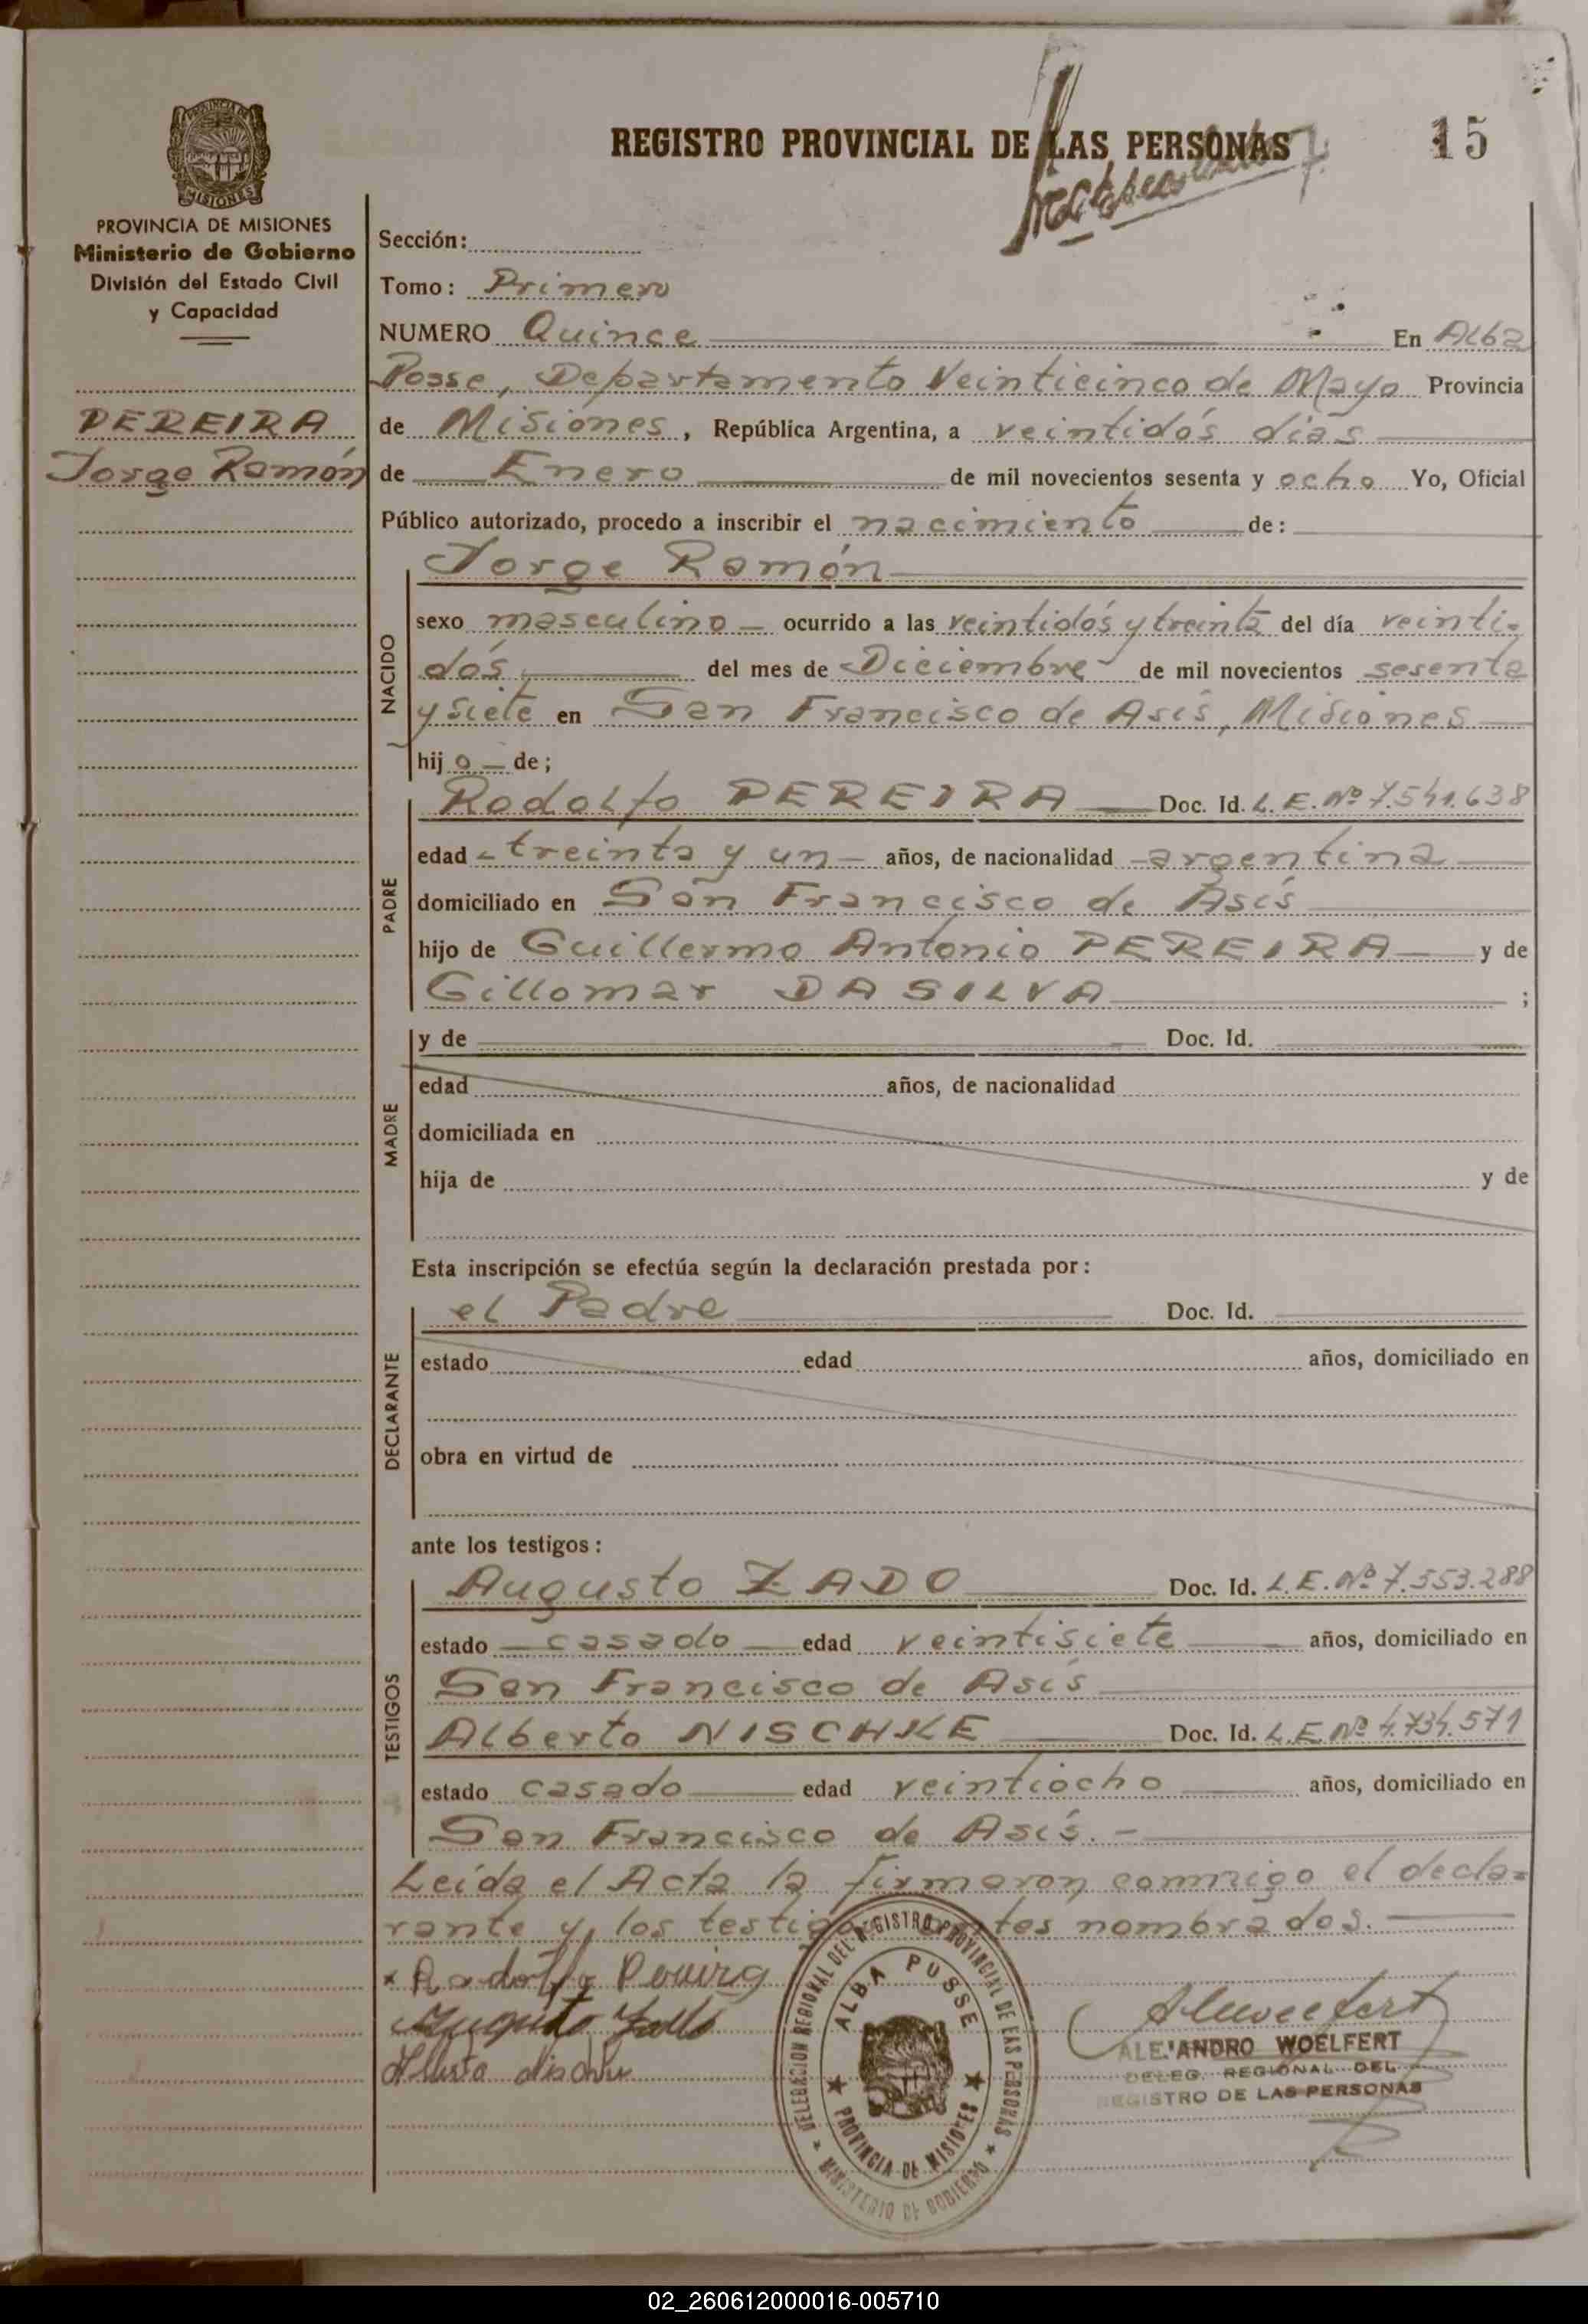 REGISTRO PROVINCIAL DE LAS PERSONAS
15
MISIONES
PROVINCIA DE MISIONES
Ministerio de Gobierno
División del Estado Civil
y Capacidad
PEREIRA
Jorge Ramón
Sección:
Tomo: Primero
NUMERO Quince En Alba
Posse, Departamento Veinticinco de Mayo Provincia
de Misiones, República Argentina, a veintidós días
de Enero de mil novecientos sesenta y ocho Yo, Oficial
Público autorizado, procedo a inscribir el nacimiento de:
NACIDO
Jorge Ramón
sexo masculino ocurrido a las veintidós y treinta del día veinti-
dós del mes de Diciembre de mil novecientos sesenta
y siete en San Francisco de Asís, Misiones
hijo de;
PADRE
Rodolfo PEREIRA Doc. Id. L.E. Nº 7.541.638
edad treinta y un años, de nacionalidad argentina
domiciliado en San Francisco de Asís
hijo de Guillermo Antonio PEREIRA y de
Gillomar DA SILVA ;
MADRE
y de Doc. Id.
edad años, de nacionalidad
domiciliada en
hija de y de
Esta inscripción se efectúa según la declaración prestada por:
DECLARANTE
el Padre Doc. Id.
estado edad años, domiciliado en
obra en virtud de
ante los testigos:
TESTIGOS
Augusto ZADO Doc. Id. L.E. Nº 7.553.288
estado casado edad veintisiete años, domiciliado en
San Francisco de Asís
Alberto NISCHKE Doc. Id. L.E. Nº 4.734.571
estado casado edad veintiocho años, domiciliado en
San Francisco de Asís.-
Leída el Acta la firmaron conmigo el decla-
rante y los testigos nombrados.
ALBA POSSE
PROVINCIA DE MISIONES
DELEGACION REGIONAL DEL REGISTRO PROVINCIAL DE LAS PERSONAS
MINISTERIO DE GOBIERNO
ALEJANDRO WOELFERT
DELEG. REGIONAL DEL
REGISTRO DE LAS PERSONAS
02_260612000016-005710